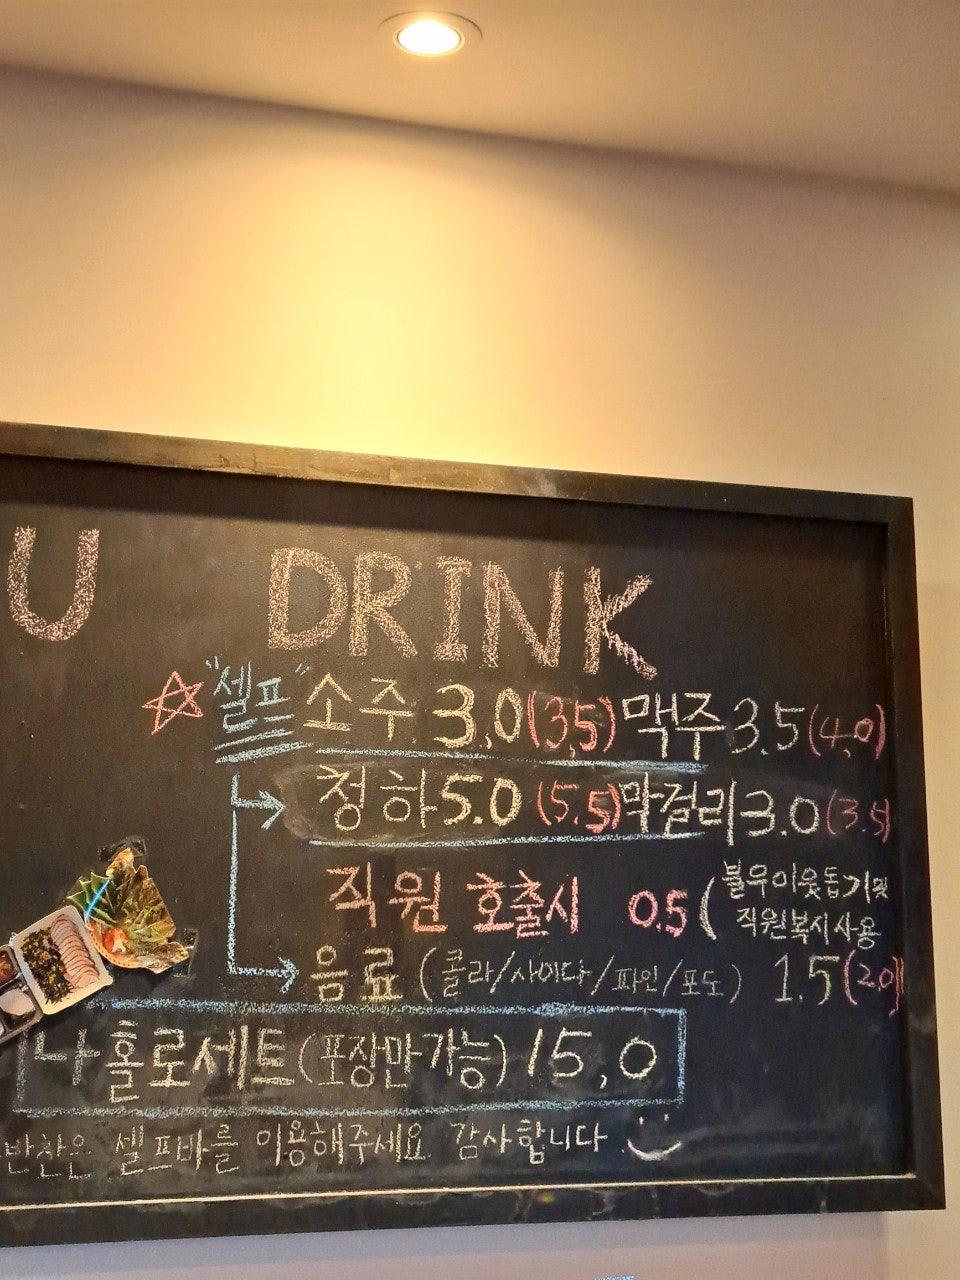 U DRINK
"셀프" 소주 3.0 (3.5) 맥주 3.5 (4.0)
청하 5.0 (5.5) 막걸리 3.0 (3.5)
직원 호출시 0.5 (불우이웃돕기및
직원복시사용
음료 (콜라/사이다/파인/포도) 1.5 (2.0)
나홀로세트(포장만가능) 15,0
반찬은 셀프바를 이용해주세요 감사합니다